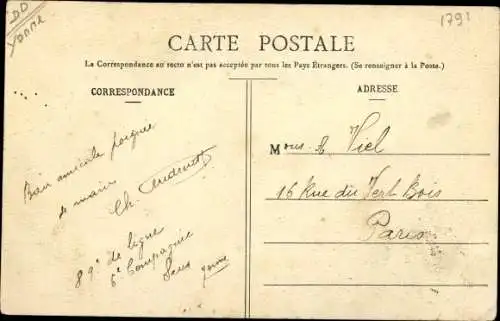 DD
YONNE
1791
CARTE POSTALE
La Correspondance au recto n'est pas acceptée par tous les Pays Étrangers. (Se renseigner à la Poste.)
CORRESPONDANCE
Bien amicale poignée
de main
Ch.
89e de ligne
6e Compagnie
Sens Yonne
ADRESSE
Mons. Viel
16 Rue du Vert Bois
Paris